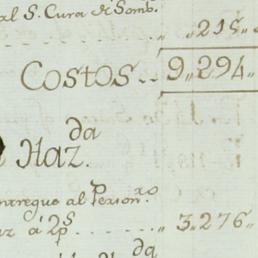 al S. Cura de Somb.
,, 215,,
Costos.. 9,,294,,
Haz.da
entregue al Person.ro
az a 2p.s ....... ,, 3,,276,,
da